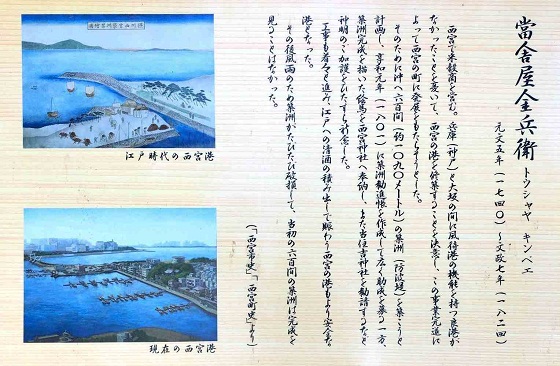 當舎屋金兵衛 トウシャヤ キンベエ
元文五年(一七四〇)～文政七年(一八二四)
西宮で米穀商を営む。兵庫(神戸)と大坂の間に風待港の機能を持つ良港が
なかったことを憂いて、西宮の港を修築することを決意し、この事業完遂に
よって西宮の町に発展をもたらそうとした。
そのために沖へ六百間(約一〇九〇メートル)の築洲(防波堤)を築こうと
計画し、享和元年(一八〇一)に築洲勧進帳を作成して広く助成を募る一方、
築洲完成を描いた絵馬を西宮神社へ奉納し、また当住吉神社を勧請するなど
神明のご加護をひたすら祈念した。
工事も着々と進み、江戸への清酒の積み出しで賑わう西宮の港もより安全な
港となった。
その後風雨のため築洲がたびたび破損して、当初の六百間の築洲は完成を
見ることはなかった。
(「西宮市史」「西宮町史」より)
江戸時代の西宮港
現在の西宮港